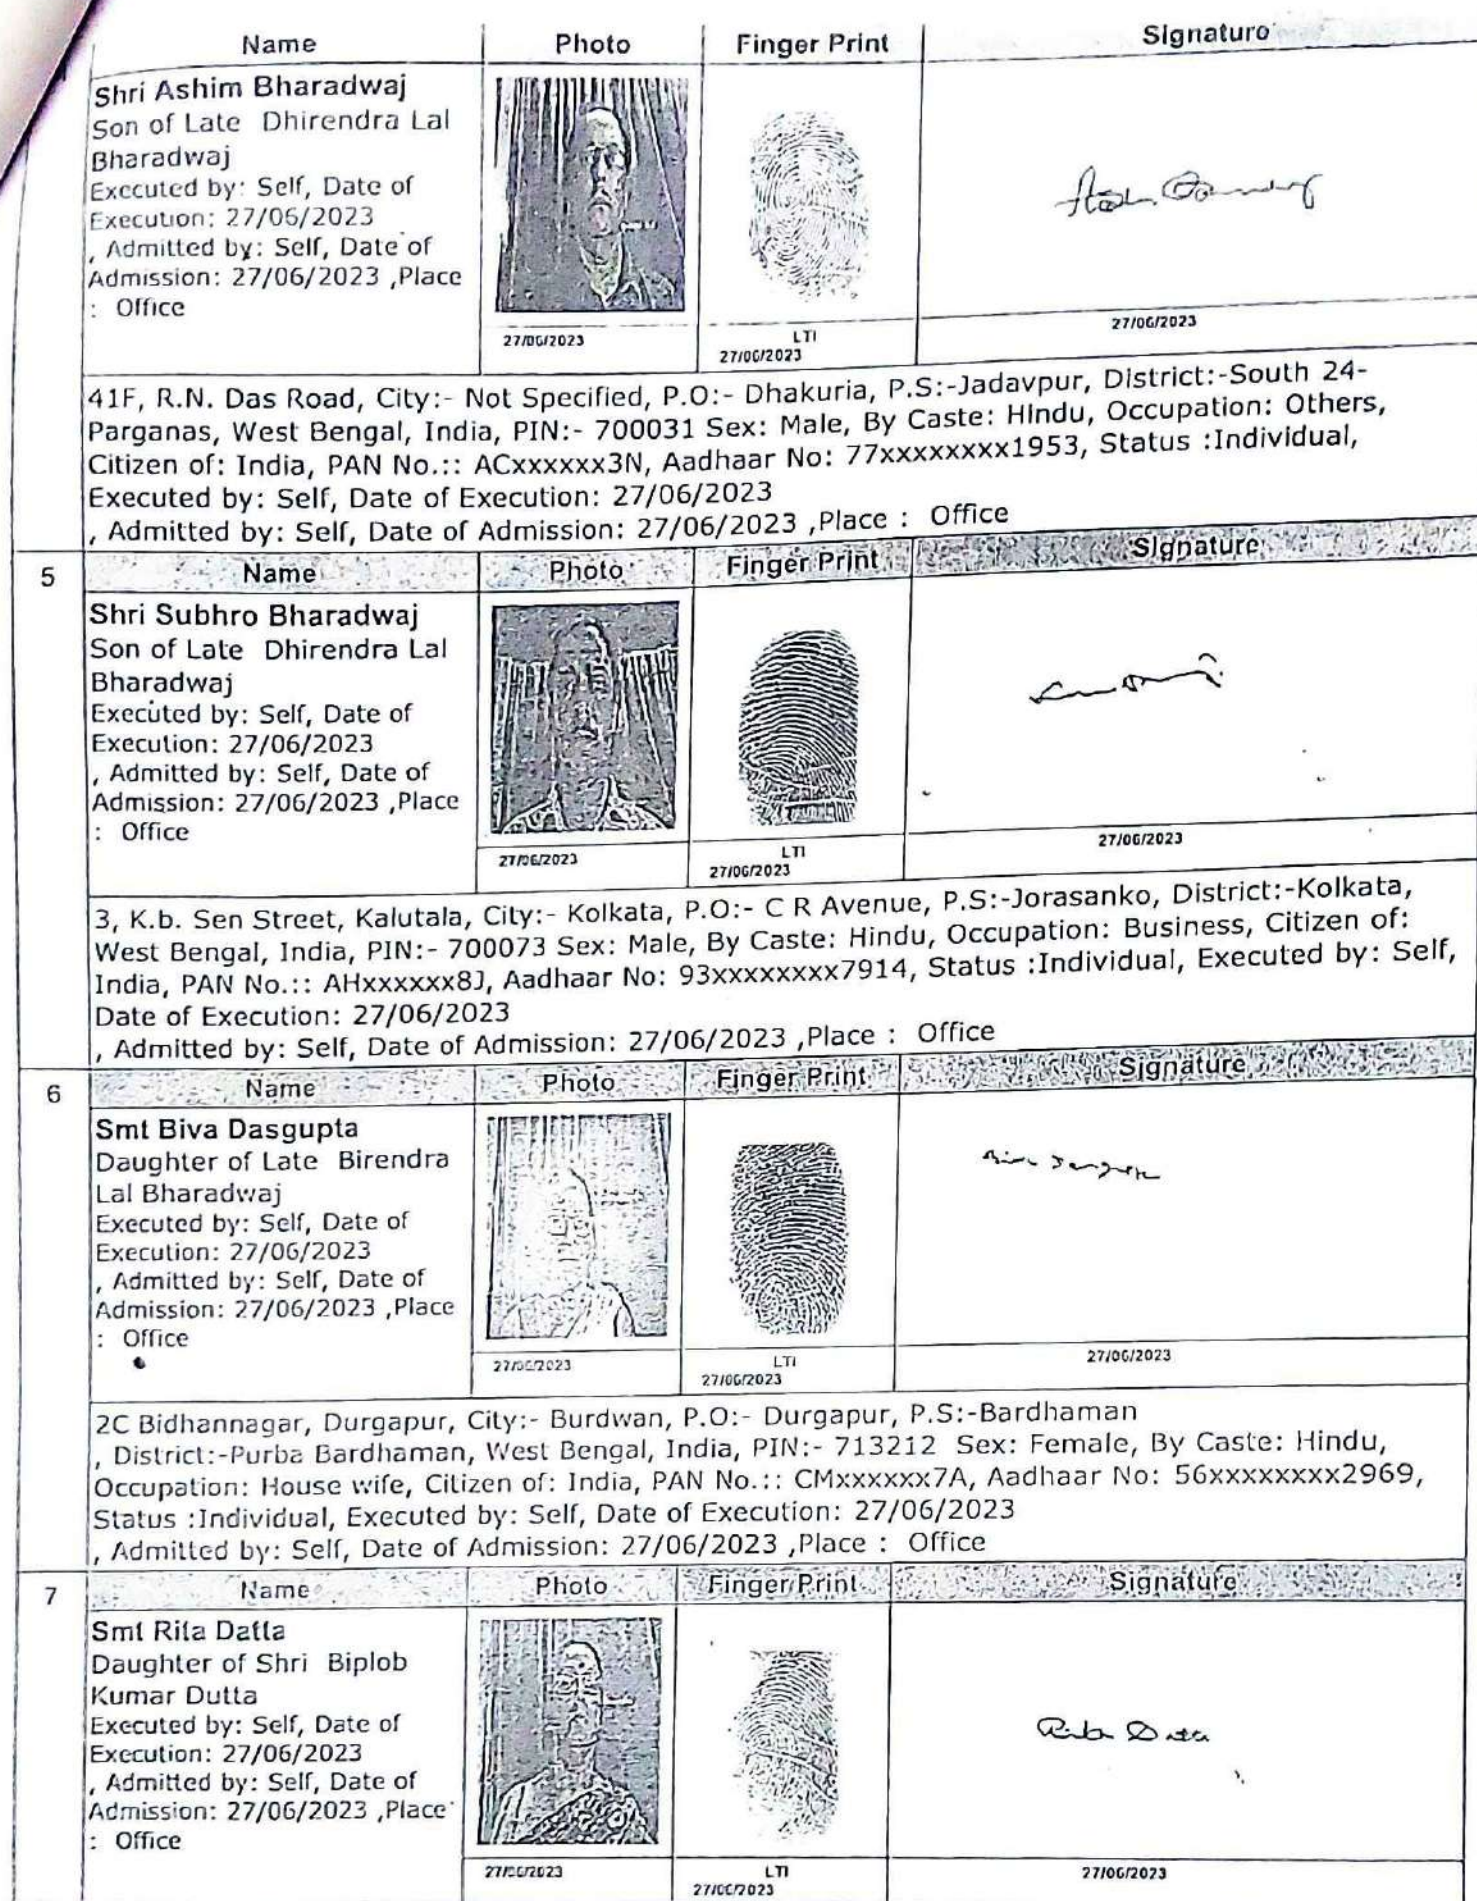 Name Photo Finger Print Signature
Shri Ashim Bharadwaj
Son of Late Dhirendra Lal
Bharadwaj
Executed by: Self, Date of
Execution: 27/06/2023
, Admitted by: Self, Date of
Admission: 27/06/2023 ,Place
: Office
27/06/2023
LTI
27/06/2023
27/06/2023
41F, R.N. Das Road, City:- Not Specified, P.O:- Dhakuria, P.S:-Jadavpur, District:-South 24-
Parganas, West Bengal, India, PIN:- 700031 Sex: Male, By Caste: Hindu, Occupation: Others,
Citizen of: India, PAN No.:: ACxxxxxx3N, Aadhaar No: 77xxxxxxxx1953, Status :Individual,
Executed by: Self, Date of Execution: 27/06/2023
, Admitted by: Self, Date of Admission: 27/06/2023 ,Place : Office
5 Name Photo Finger Print Signature
Shri Subhro Bharadwaj
Son of Late Dhirendra Lal
Bharadwaj
Executed by: Self, Date of
Execution: 27/06/2023
, Admitted by: Self, Date of
Admission: 27/06/2023 ,Place
: Office
27/06/2023
LTI
27/06/2023
27/06/2023
3, K.b. Sen Street, Kalutala, City:- Kolkata, P.O:- C R Avenue, P.S:-Jorasanko, District:-Kolkata,
West Bengal, India, PIN:- 700073 Sex: Male, By Caste: Hindu, Occupation: Business, Citizen of:
India, PAN No.:: AHxxxxxx8J, Aadhaar No: 93xxxxxxxx7914, Status :Individual, Executed by: Self,
Date of Execution: 27/06/2023
, Admitted by: Self, Date of Admission: 27/06/2023 ,Place : Office
6 Name Photo Finger Print Signature
Smt Biva Dasgupta
Daughter of Late Birendra
Lal Bharadwaj
Executed by: Self, Date of
Execution: 27/06/2023
, Admitted by: Self, Date of
Admission: 27/06/2023 ,Place
: Office
27/06/2023
LTI
27/06/2023
27/06/2023
2C Bidhannagar, Durgapur, City:- Burdwan, P.O:- Durgapur, P.S:-Bardhaman
, District:-Purba Bardhaman, West Bengal, India, PIN:- 713212 Sex: Female, By Caste: Hindu,
Occupation: House wife, Citizen of: India, PAN No.:: CMxxxxxx7A, Aadhaar No: 56xxxxxxxx2969,
Status :Individual, Executed by: Self, Date of Execution: 27/06/2023
, Admitted by: Self, Date of Admission: 27/06/2023 ,Place : Office
7 Name Photo Finger Print Signature
Smt Rita Datta
Daughter of Shri Biplob
Kumar Dutta
Executed by: Self, Date of
Execution: 27/06/2023
, Admitted by: Self, Date of
Admission: 27/06/2023 ,Place
: Office
Rita Datta
27/06/2023
LTI
27/06/2023
27/06/2023